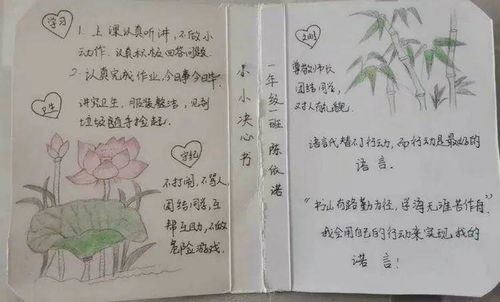 学习
1. 上课认真听讲，不做小
动作。认真积极回答问题。
2. 认真完成作业，今日事今日毕。
卫生
讲究卫生，服装整洁，见到
垃圾随手捡起。
守纪
不打闹，不骂人，
团结同学，互
帮互助，不做
危险游戏。
小小决心书
一年级一班 陈依诺
文明
尊敬师长
团结同学，
对人有礼貌。
语言代替不了行动，而行动是最好的
语言。
“书山有路勤为径，学海无涯苦作舟”
我会用自己的行动来实现我的
诺言！